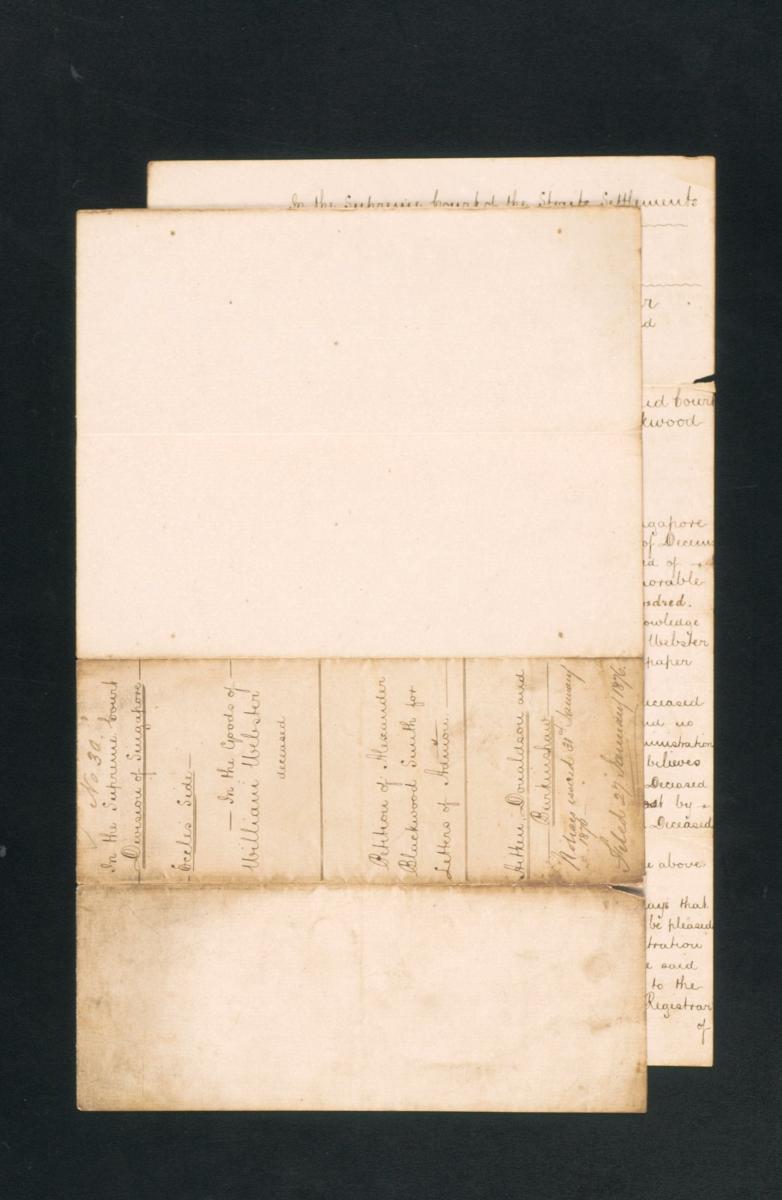 In the Supreme Court of the Straits Settlements
r
d
id Court
kwood
ngapore
of Decem
ed of
norable
ndred.
owledge
Webster
paper
eceased
nd no
ministration
believes
Deceased
by
Deceased
e above
ays that
be pleased
tration
e said
to the
Registrar
of
No. 30.
In the Supreme Court
Division of Singapore
Eccles Side —
— In the Goods of
William Webster
deceased
Petition of Alexander
Blackwood Smith for
Letters of Admon. —
Aitken, Donaldson and
Burkinshaw
issued 31st January
1876
Filed 27 January 1876.